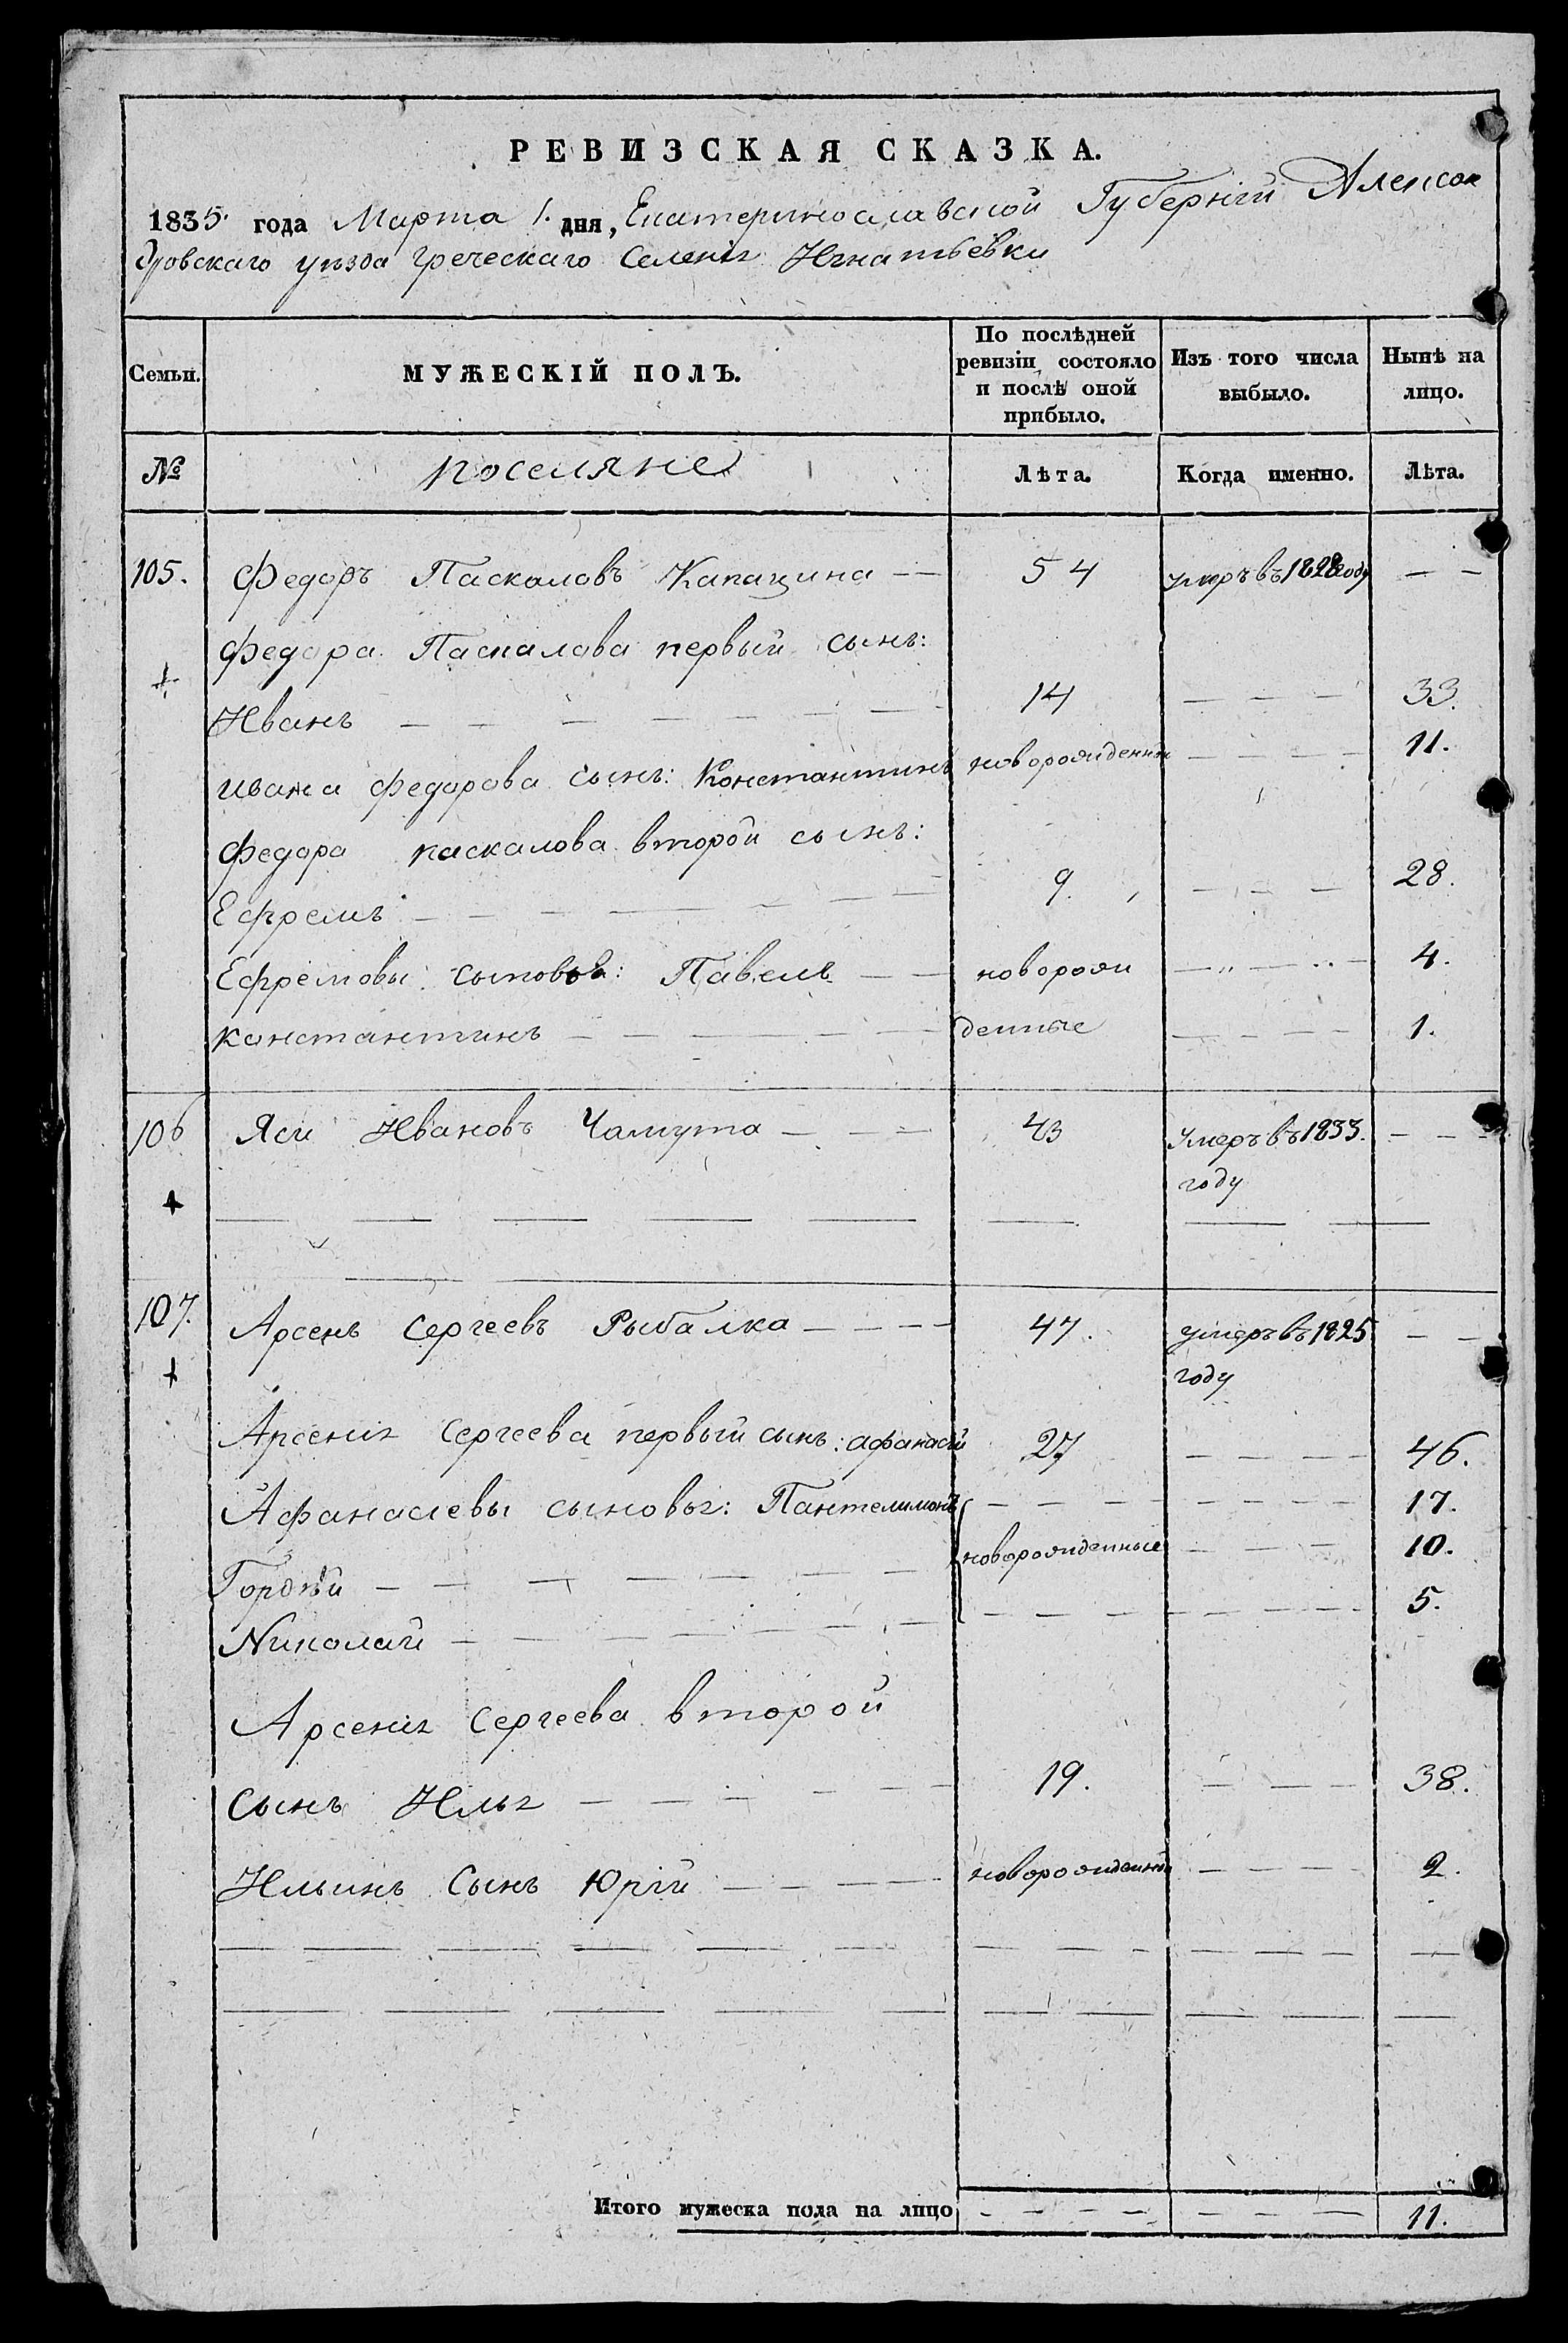 РЕВИЗСКАЯ СКАЗКА.
1835. года Марта 1. дня, Екатеринославской Губерніи Алексан
дровскаго уѣзда греческаго Селенія Игнатьевки
Семьи. МУЖЕСКІЙ ПОЛЪ. По послѣдней ревизіи состояло и послѣ оной прибыло. Изъ того числа выбыло. Нынѣ на лицо.
№ поселяне Лѣта. Когда именно. Лѣта.
105. Федоръ Паскаловъ Капацина — — 54 умеръ въ 1828 году — —
Федора Паскалова первый сынъ:
Иванъ — — — — — — — 14 — — — 33.
Ивана Федорова сынъ: Константинъ новорожденный — — — — 11.
Федора паскалова второй сынъ:
Ефремъ — — — — — — — 9. — — — 28.
Ефремовы сыновья: Павелъ — — новорож — — — 4.
Константинъ — — — — — — денные — — — — 1.
106 Яси Ивановъ Чамута — — — 43 Умеръ въ 1833. — — —
году
107. Арсенъ Сергеевъ Рыбалка — — — — 47. умеръ въ 1825 — —
году
Арсенія Сергеева первый сынъ: афанасій 27 — — — — 46.
Афанасіевы сыновья: Пантелимонъ — — — — — — — — 17.
Гордѣй — — — — — — — новорожденные — — — 10.
Николай — — — — — — — — — — — — — — 5.
Арсенія Сергеева второй
сынъ Илья — — — — — 19. — — — 38.
Ильинъ Сынъ Юрій — — — — новорожденный — — — — 2.
Итого мужеска пола на лицо — — — — — — — 11.